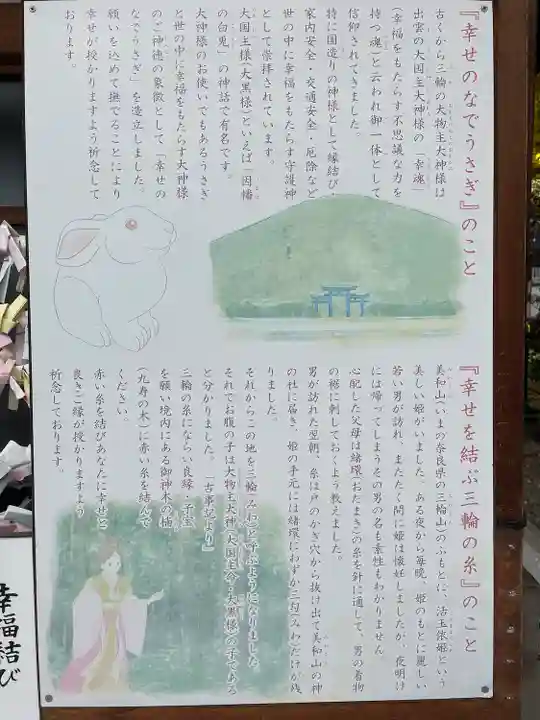 『幸せのなでうさぎ』のこと
古くから三輪の大物主大神様は
出雲の大国主大神様の「幸魂」
(幸福をもたらす不思議な力を
持つ魂)と云われ御一体として
信仰されてきました。
特に国造りの神様として縁結び・
家内安全・交通安全・厄除など
世の中に幸福をもたらす守護神
として崇拝されています。
大国主様(大黒様)といえば「因幡
の白兎」の神話で有名です。
大神様のお使いでもあるうさぎ
と世の中に幸福をもたらす大神様
のご神徳の象徴として「幸せの
なでうさぎ」を造立しました。
願いを込めて撫でることにより
幸せが授かりますよう祈念して
おります。
『幸せを結ぶ三輪の糸』のこと
美和山(いまの奈良県の三輪山)のふもとに、活玉依姫という
美しい姫がいました。ある夜から毎晩、姫のもとに麗しい
若い男が訪れ、またたく間に姫は懐妊しましたが、夜明け
には帰ってしまうその男の名も素性もわかりません。
心配した父母は緒環(おたまき)の糸を針に通して、男の着物
の裾に刺しておくよう教えました。
男が訪れた翌朝、糸は戸のかぎ穴から抜け出て美和山の神
の社に届き、姫の手元には緒環にわずか三勾(みわ)だけが残
りました。
それからこの地を三輪(みわ)と呼ぶようになりました。
それでお腹の子は大物主大神(大国主命・大黒様)の子である
と分かりました。「古事記より」
三輪の糸にならい良縁・子宝
を願い境内にある御神木の楠
(九寿の木)に赤い糸を結んで
ください。
赤い糸を結びあなたに幸せと
良きご縁が授かりますよう
祈念しております。
幸福結び